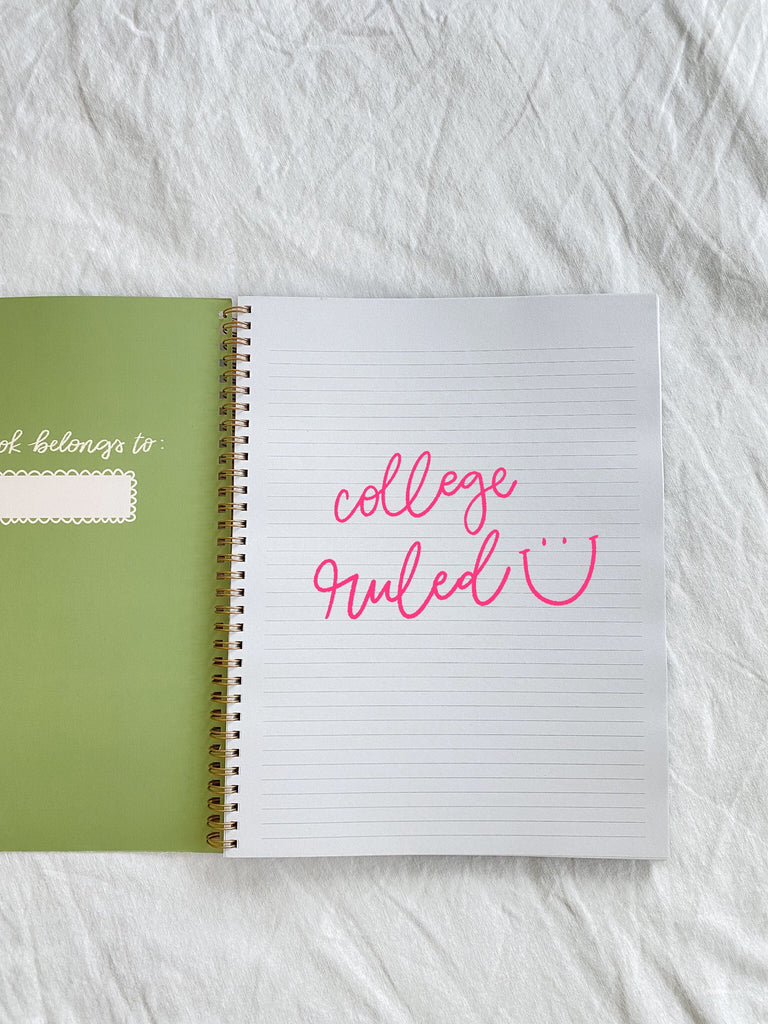 ok belongs to:
college
ruled